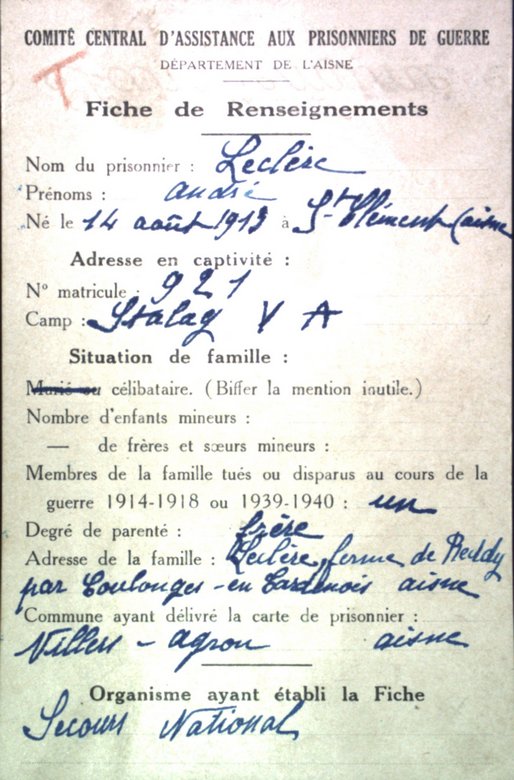 COMITÉ CENTRAL D'ASSISTANCE AUX PRISONNIERS DE GUERRE
DÉPARTEMENT DE L'AISNE
T
Fiche de Renseignements
Nom du prisonnier : Leclère
Prénoms : andré
Né le 14 août 1913 à St Clément (aisne
Adresse en captivité :
N° matricule : 921
Camp : Stalag V A
Situation de famille :
Marié ou célibataire. (Biffer la mention inutile.)
Nombre d'enfants mineurs :
— de frères et sœurs mineurs :
Membres de la famille tués ou disparus au cours de la
guerre 1914-1918 ou 1939-1940 : un
Degré de parenté : frère
Adresse de la famille : Leclère, ferme de
par Coulonges-en Tardenois aisne
Commune ayant délivré la carte de prisonnier :
Villers - agron aisne
Organisme ayant établi la Fiche
Secours National